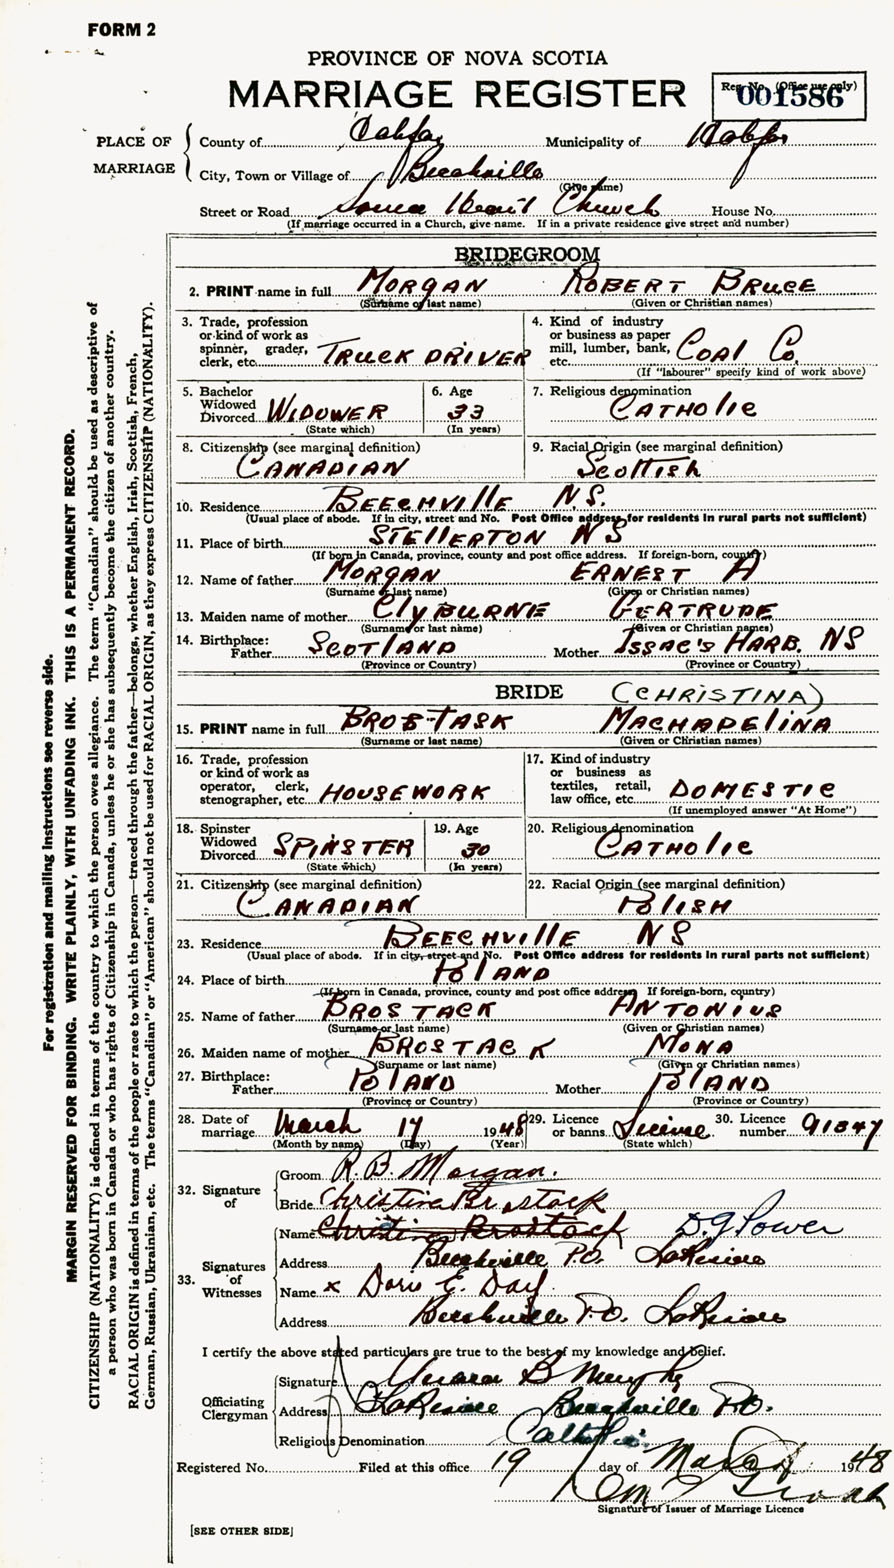 FORM 2
PROVINCE OF NOVA SCOTIA
MARRIAGE REGISTER
Reg. No. (Office use only)
001586
PLACE OF MARRIAGE
County of Halifax Municipality of Halifax
City, Town or Village of Beechville
(Give name)
Street or Road Church House No.
(If marriage occurred in a Church, give name. If in a private residence give street and number)
BRIDEGROOM
2. PRINT name in full MORGAN ROBERT BRUCE
(Surname or last name) (Given or Christian names)
3. Trade, profession or kind of work as spinner, grader, clerk, etc. TRUCK DRIVER
4. Kind of industry or business as paper mill, lumber, bank, etc. COAL Co.
(If "labourer" specify kind of work above)
5. Bachelor Widowed Divorced WIDOWER
(State which)
6. Age 33
(In years)
7. Religious denomination CATHOLIC
8. Citizenship (see marginal definition)
CANADIAN
9. Racial Origin (see marginal definition)
Scottish
10. Residence BEECHVILLE N.S.
(Usual place of abode. If in city, street and No. Post Office address for residents in rural parts not sufficient)
11. Place of birth STELLERTON NS
(If born in Canada, province, county and post office address. If foreign-born, country)
12. Name of father MORGAN ERNEST A
(Surname or last name) (Given or Christian names)
13. Maiden name of mother ClyBURNE GERTRUDE
(Surname or last name) (Given or Christian names)
14. Birthplace: Father SCOTLAND Mother ISSAC'S HARB. NS
(Province or Country) (Province or Country)
BRIDE (CHRISTINA)
15. PRINT name in full BROB-TASK MACHADELINA
(Surname or last name) (Given or Christian names)
16. Trade, profession or kind of work as operator, clerk, stenographer, etc. HOUSEWORK
17. Kind of industry or business as textiles, retail, law office, etc. DOMESTIC
(If unemployed answer "At Home")
18. Spinster Widowed Divorced SPINSTER
(State which)
19. Age 30
(In years)
20. Religious denomination
CATHOLIC
21. Citizenship (see marginal definition)
CANADIAN
22. Racial Origin (see marginal definition)
POLISH
23. Residence BEECHVILLE NS
(Usual place of abode. If in city, street and No. Post Office address for residents in rural parts not sufficient)
24. Place of birth POLAND
(If born in Canada, province, county and post office address. If foreign-born, country)
25. Name of father BROSTACK ANTONIUS
(Surname or last name) (Given or Christian names)
26. Maiden name of mother BROSTACK MONA
(Surname or last name) (Given or Christian names)
27. Birthplace: Father POLAND Mother POLAND
(Province or Country) (Province or Country)
28. Date of marriage March 17 1948
(Month by name) (Day) (Year)
29. Licence or banns License
(State which)
30. Licence number 91847
32. Signature of
Groom R. B. Morgan.
Bride Christina Brostack
33. Signatures of Witnesses
Name Christina Brostack D. J Power
Address Beechville P.O. Lakeside
Name x Doris E. Day
Address Beechville P.O. Lakeside
I certify the above stated particulars are true to the best of my knowledge and belief.
Officiating Clergyman
Signature B Murphy
Address Lakeside Beechville P.O.
Religious Denomination Catholic
Registered No. Filed at this office 19 day of March 1948
Signature of Issuer of Marriage Licence
[SEE OTHER SIDE]
For registration and mailing instructions see reverse side.
MARGIN RESERVED FOR BINDING. WRITE PLAINLY, WITH UNFADING INK. THIS IS A PERMANENT RECORD.
CITIZENSHIP (NATIONALITY) is defined in terms of the country to which the person owes allegiance. The term "Canadian" should be used as descriptive of
a person who was born in Canada or who has rights of Citizenship in Canada, unless he or she has subsequently become the citizen of another country.
RACIAL ORIGIN is defined in terms of the people or race to which the person—traced through the father—belongs, whether English, Irish, Scottish, French,
German, Russian, Ukrainian, etc. The terms "Canadian" or "American" should not be used for RACIAL ORIGIN, as they express CITIZENSHIP (NATIONALITY).